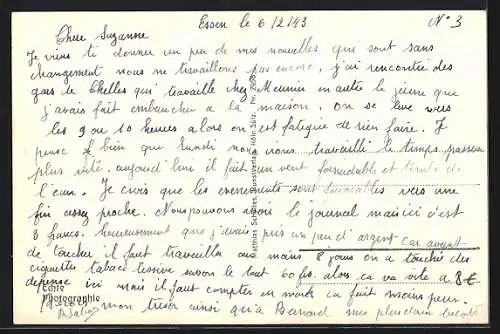 Essen le 6/2/43 N° 3
Chere Suzanne
Je viens te donner un peu de mes nouvelles que sont sans
changement nous ne travaillons pas encore, j'ai rencontre des
gars de Chelles qui travaille chez Meunier en autre le jeune que
j'avais fait embaucher a la maison. On se leve vers
les 9 ou 10 heures alors on est fatigue de rien faire. Je
pense bien que lundi nous irons travailler le temps passera
plus vite. aujourd'hui il fait un vent formidable et tombe de
l'eau. Je crois que les evenements sont vers une
fin assez proche. Nous pouvons avoir le journal mais ici c'est
3 francs. heureusement que j'avais pris un peu d'argent car avant
de toucher il faut travailler au moins 8 jours on a touché des
cigarettes tabac lessive savon le tout 60 frs. alors ca va vite a 8€
depense ici mais il faut compter en marks ca fait moins peur.
mon tresor ainsi qu'a Bernard mes plus calin
Echte
Photographie
Matthias Scholjes, Kunstverlag, Köln-Sülz.